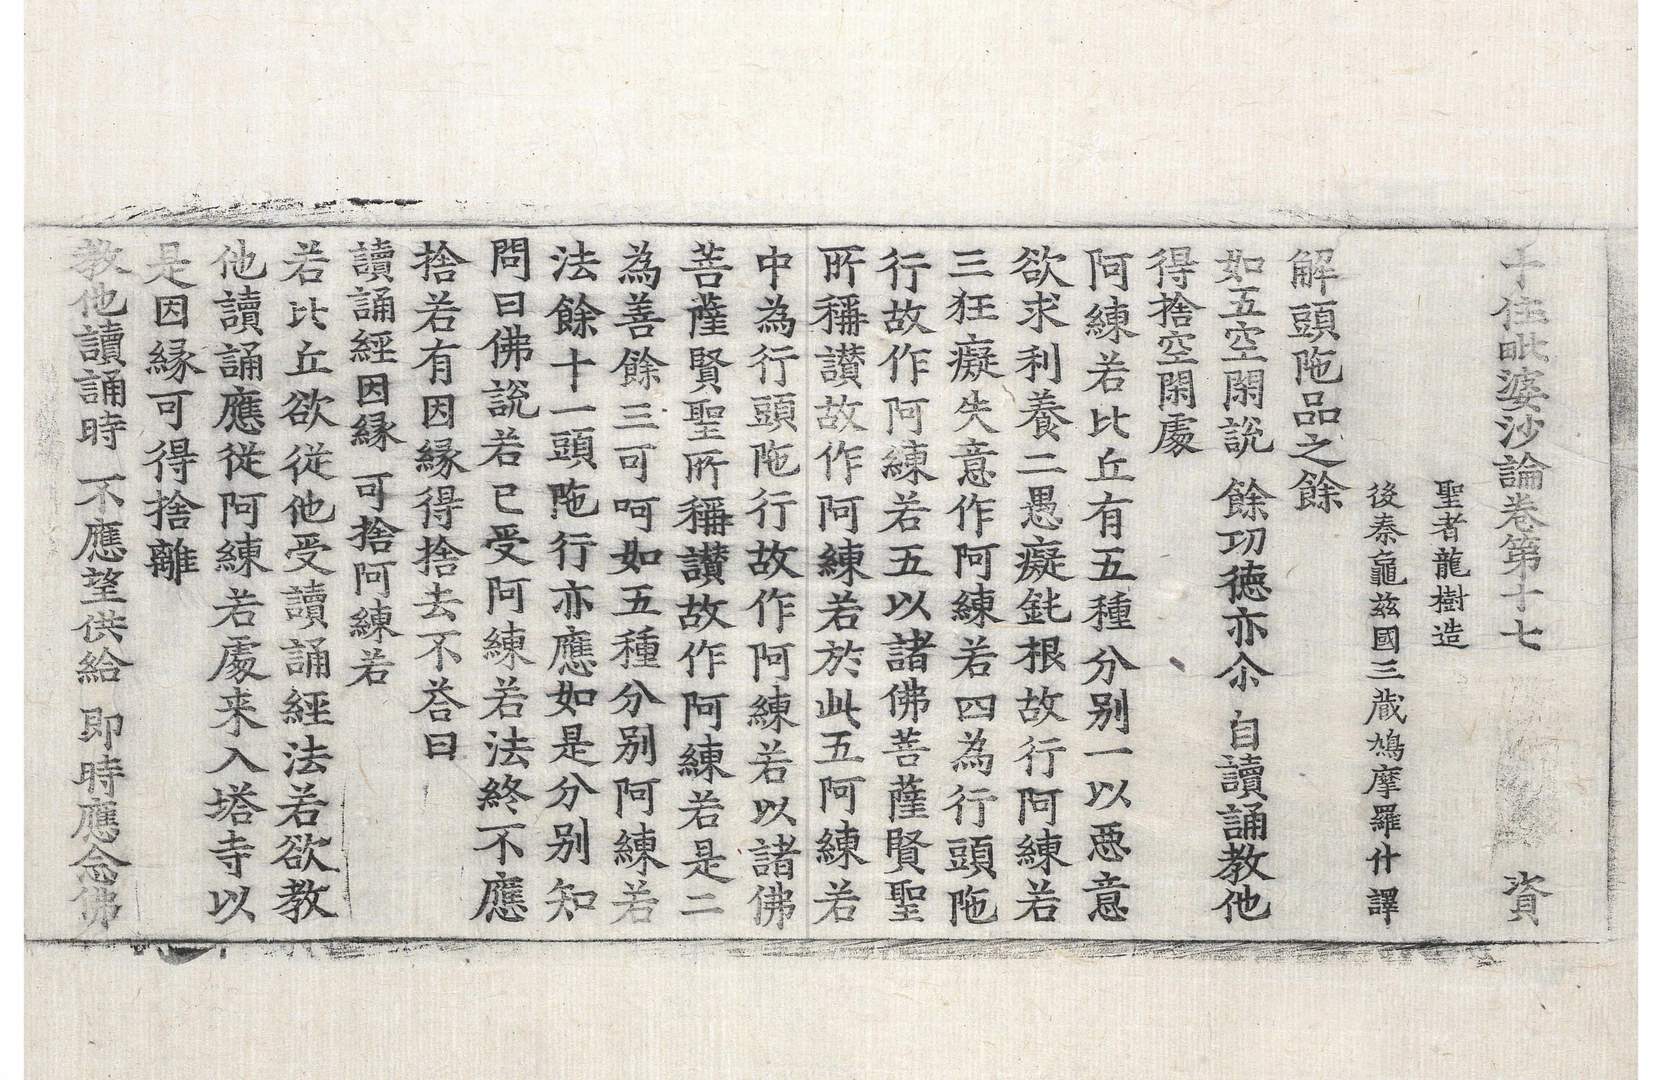 十住毗婆沙論卷第十七 資
聖者龍樹造
後秦龜茲國三藏鳩摩羅什譯
解頭陁品之餘
如五空閑說 餘功德亦尒 自讀誦教他
得捨空閑處
阿練若比丘有五種分別一以惡意
欲求利養二愚癡鈍根故行阿練若
三狂癡失意作阿練若四為行頭陁
行故作阿練若五以諸佛菩薩賢聖
所稱讃故作阿練若於此五阿練若
中為行頭陁行故作阿練若以諸佛
菩薩賢聖所稱讃故作阿練若是二
為善餘三可呵如五種分別阿練若
法餘十一頭陁行亦應如是分別知
問曰佛說若已受阿練若法終不應
捨若有因緣得捨去不荅曰
讀誦經因緣 可捨阿練若
若比丘欲從他受讀誦經法若欲教
他讀誦應從阿練若處来入塔寺以
是因緣可得捨離
教他讀誦時 不應望供給 即時應念佛